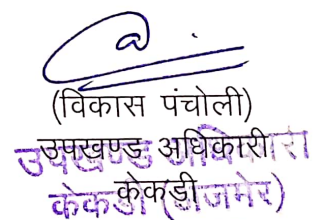 (विकास पंचोली)
उपखण्ड अधिकारी
उपखण्ड अधिकारी
केकडी
केकडी (अजमेर)